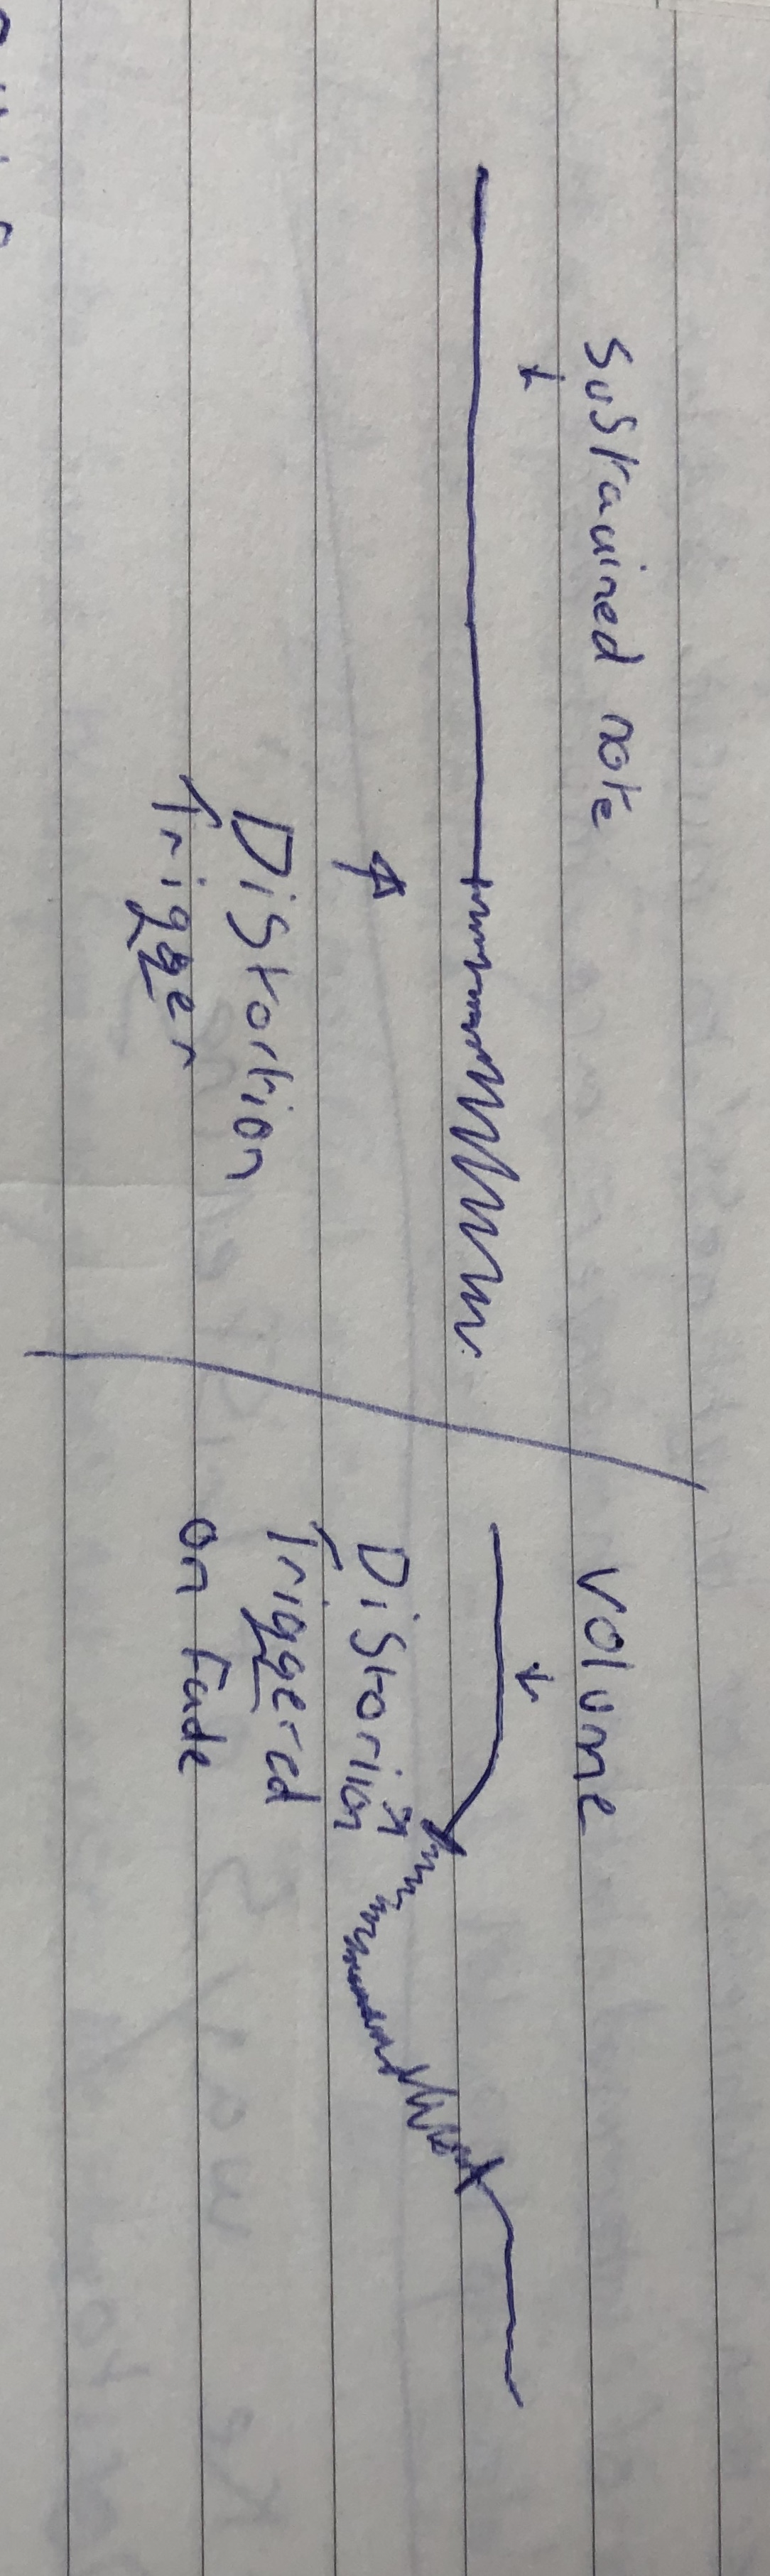 Sustained note
Distortion
Trigger
Volume
Distortion
Triggered
on fade